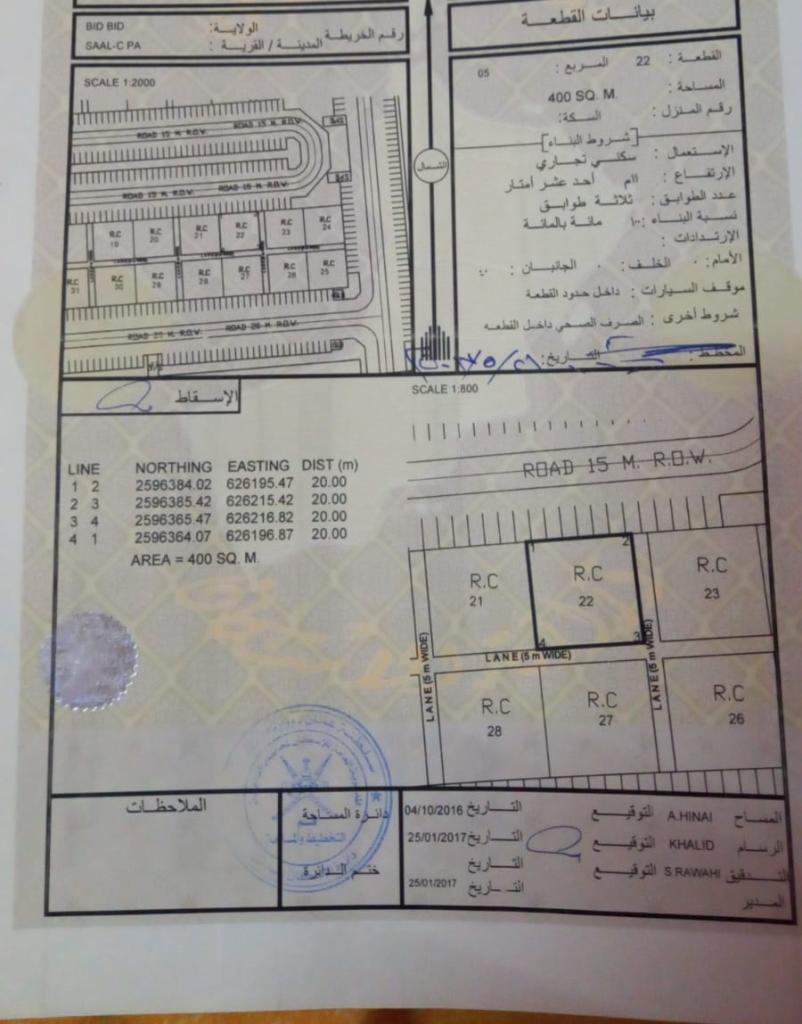 بيانات القطعة
القطعة : 22 المربع : 05
المساحة : 400 SQ. M.
رقم المنزل : السكة:
شروط البناء
الإستعمال : سكني تجاري
الإرتفاع : ١١م أحد عشر أمتار
عدد الطوابق : ثلاثة طوابق
نسبة البناء : ١٠٠ مائة بالمائة
الإرتدادات :
الأمام: ٠ الخلف: ٠ الجانبان : ٠،٠
موقف السيارات : داخل حدود القطعة
شروط أخرى : الصرف الصحي داخل القطعه
المخطط : التاريخ:
الشمال
رقم الخريطة
الولاية: BID BID
المدينة / القرية : SAAL-C PA
SCALE 1:2000
ROAD 15 M. R.O.W.
ROAD 12 M. R.O.W.
ROAD 15 M. R.O.W.
ROAD 15 M. R.O.W.
R.C 19
R.C 20
R.C 21
R.C 22
R.C 23
R.C 24
R.C 31
R.C 30
R.C 29
R.C 28
R.C 27
R.C 26
R.C 25
ROAD 20 M. R.O.W.
الإسقاط
SCALE 1:800
LINE NORTHING EASTING DIST (m)
1 2 2596384.02 626195.47 20.00
2 3 2596385.42 626215.42 20.00
3 4 2596365.47 626216.82 20.00
4 1 2596364.07 626196.87 20.00
AREA = 400 SQ. M.
ROAD 15 M. R.O.W.
1 2
R.C 21
R.C 22
R.C 23
4 3
LANE (5 m WIDE)
LANE (5 m WIDE)
LANE (5 m WIDE)
R.C 28
R.C 27
R.C 26
المساح A.HINAI التوقيع التاريخ 04/10/2016
الرسام KHALID التوقيع التاريخ 25/01/2017
التدقيق S.RAWAHI التوقيع التاريخ
المدير التاريخ 25/01/2017
دائرة المساحة
ختم الدائرة
الملاحظات